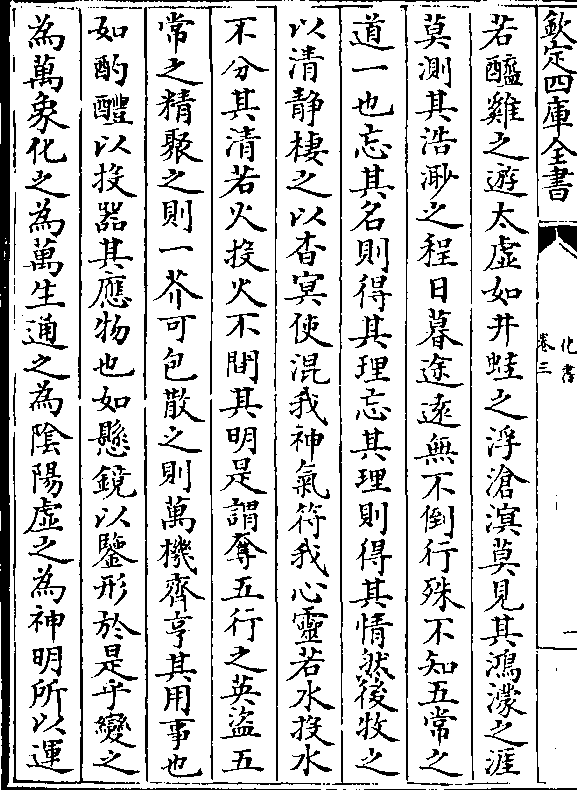 欽定四庫全書
化書
卷三
一
若醯雞之遊太虛如井蛙之浮滄溟莫見其鴻濛之涯
莫測其浩渺之程日暮途遠無不倒行殊不知五常之
道一也忘其名則得其理忘其理則得其情然後牧之
以清静棲之以杳冥使混我神氣符我心靈若水投水
不分其清若火投火不間其明是謂奪五行之英盜五
常之精聚之則一芥可包散之則萬機齊亨其用事也
如酌醴以投器其應物也如懸鏡以鑒形於是乎變之
為萬象化之為萬生通之為陰陽虛之為神明所以運